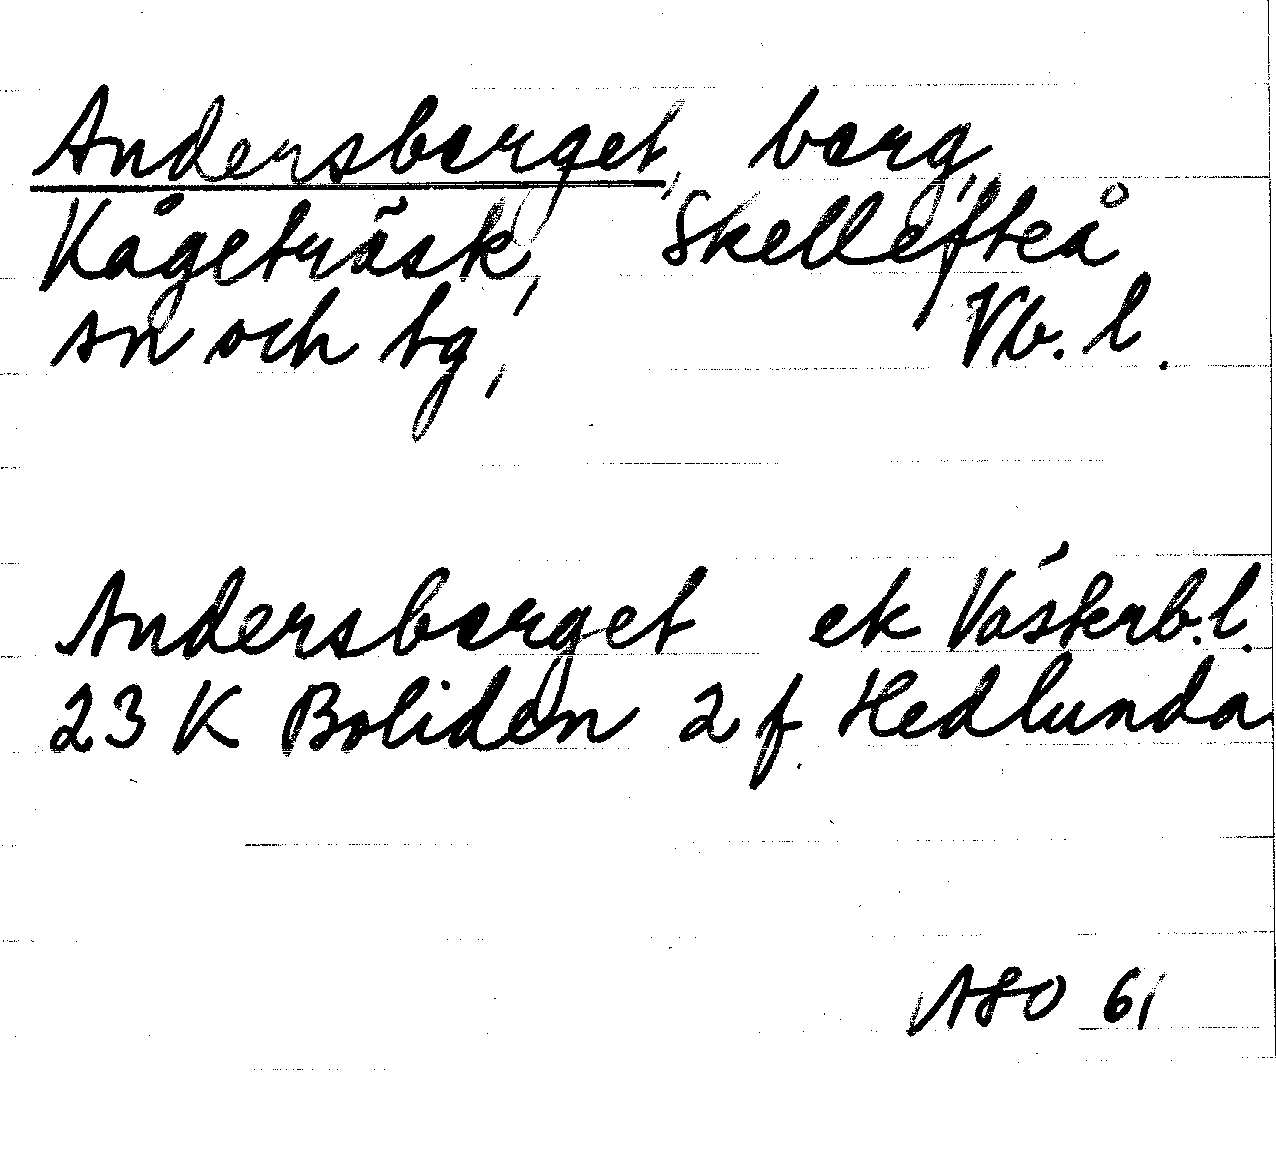 Andersberget, berg,
Kågeträsk, Skellefteå
sn och tg, Vb. l.
Andersberget ek Västerb.l.
23 K Boliden 2 f. Hedlunda
ASO 61